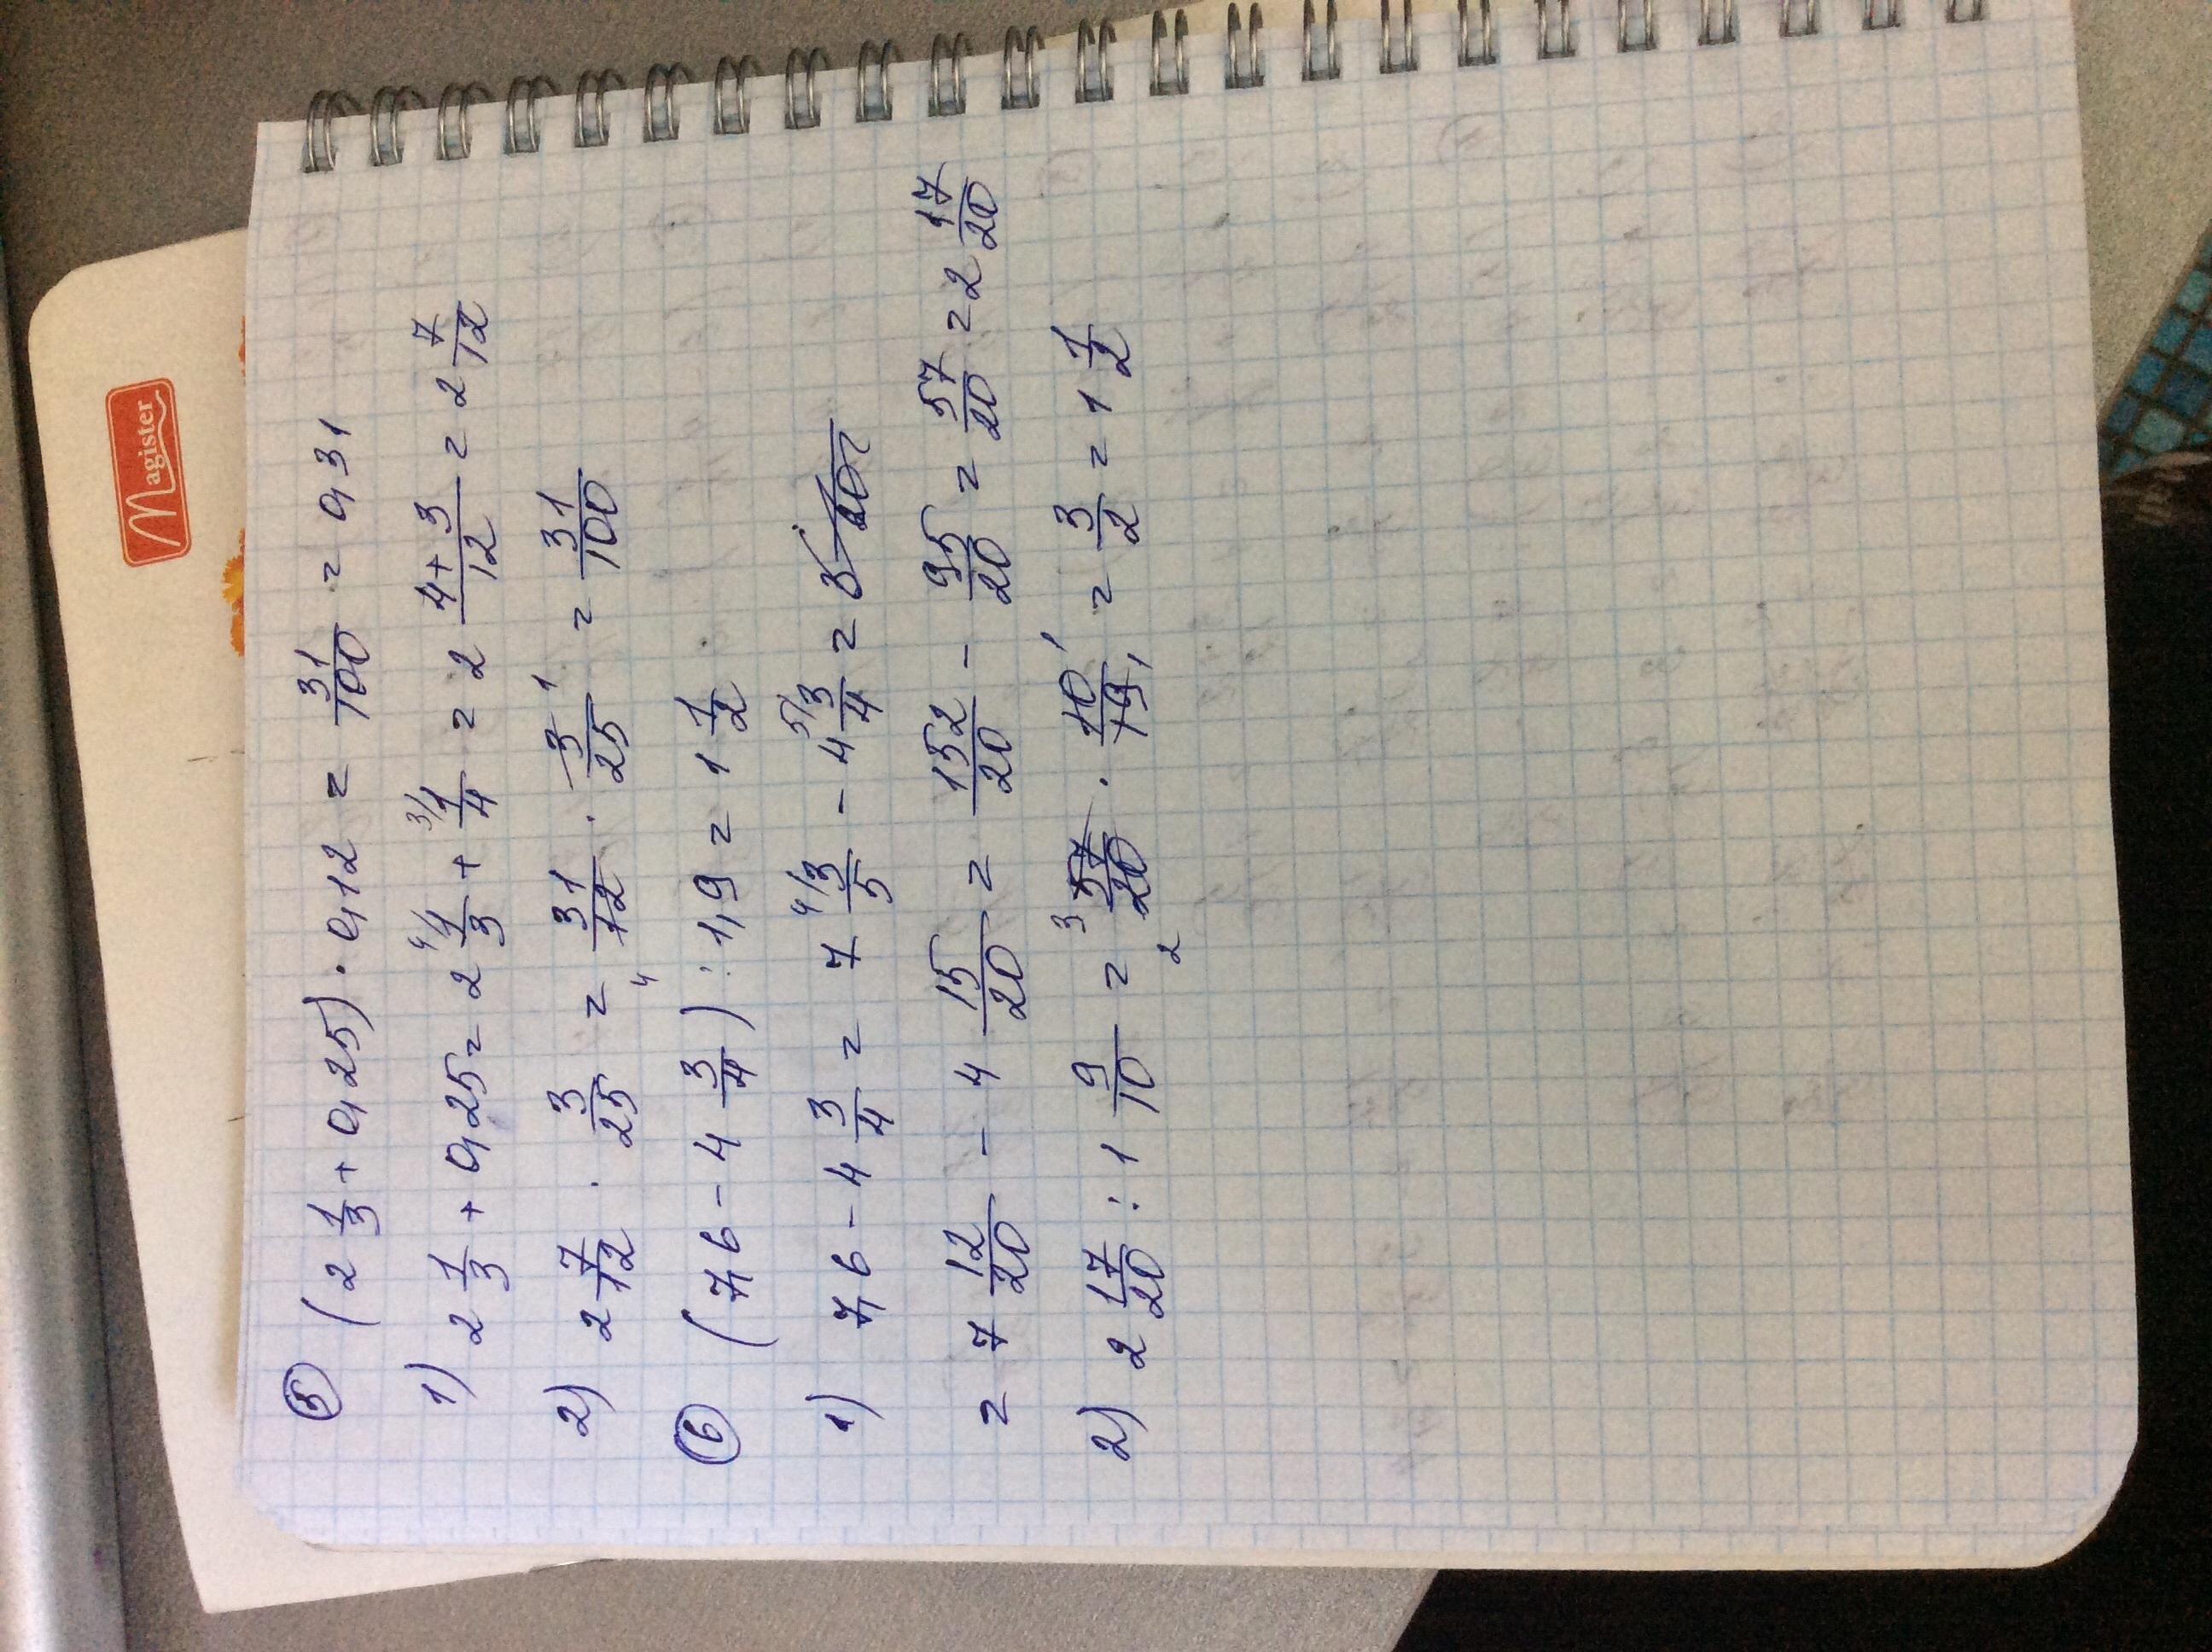 Magister
⑤ (2 1/3 + 0,25) · 0,12 = 31/100 = 0,31
1) 2 1/3 + 0,25 = 2 4/ 1/3 + 3/ 1/4 = 2 4+3/12 = 2 7/12
2) 2 7/12 · 3/25 = 31/12 4 · 3/25 1 = 31/100
⑥ (7,6 - 4 3/4) : 1,9 = 1 1/2
1) 7,6 - 4 3/4 = 7 4/ 3/5 - 4 5/ 3/4 =
= 7 12/20 - 4 15/20 = 152/20 - 95/20 = 57/20 = 2 17/20
2) 2 17/20 : 1 9/10 = 3 57/20 2 · 10/19 1 1 = 3/2 = 1 1/2